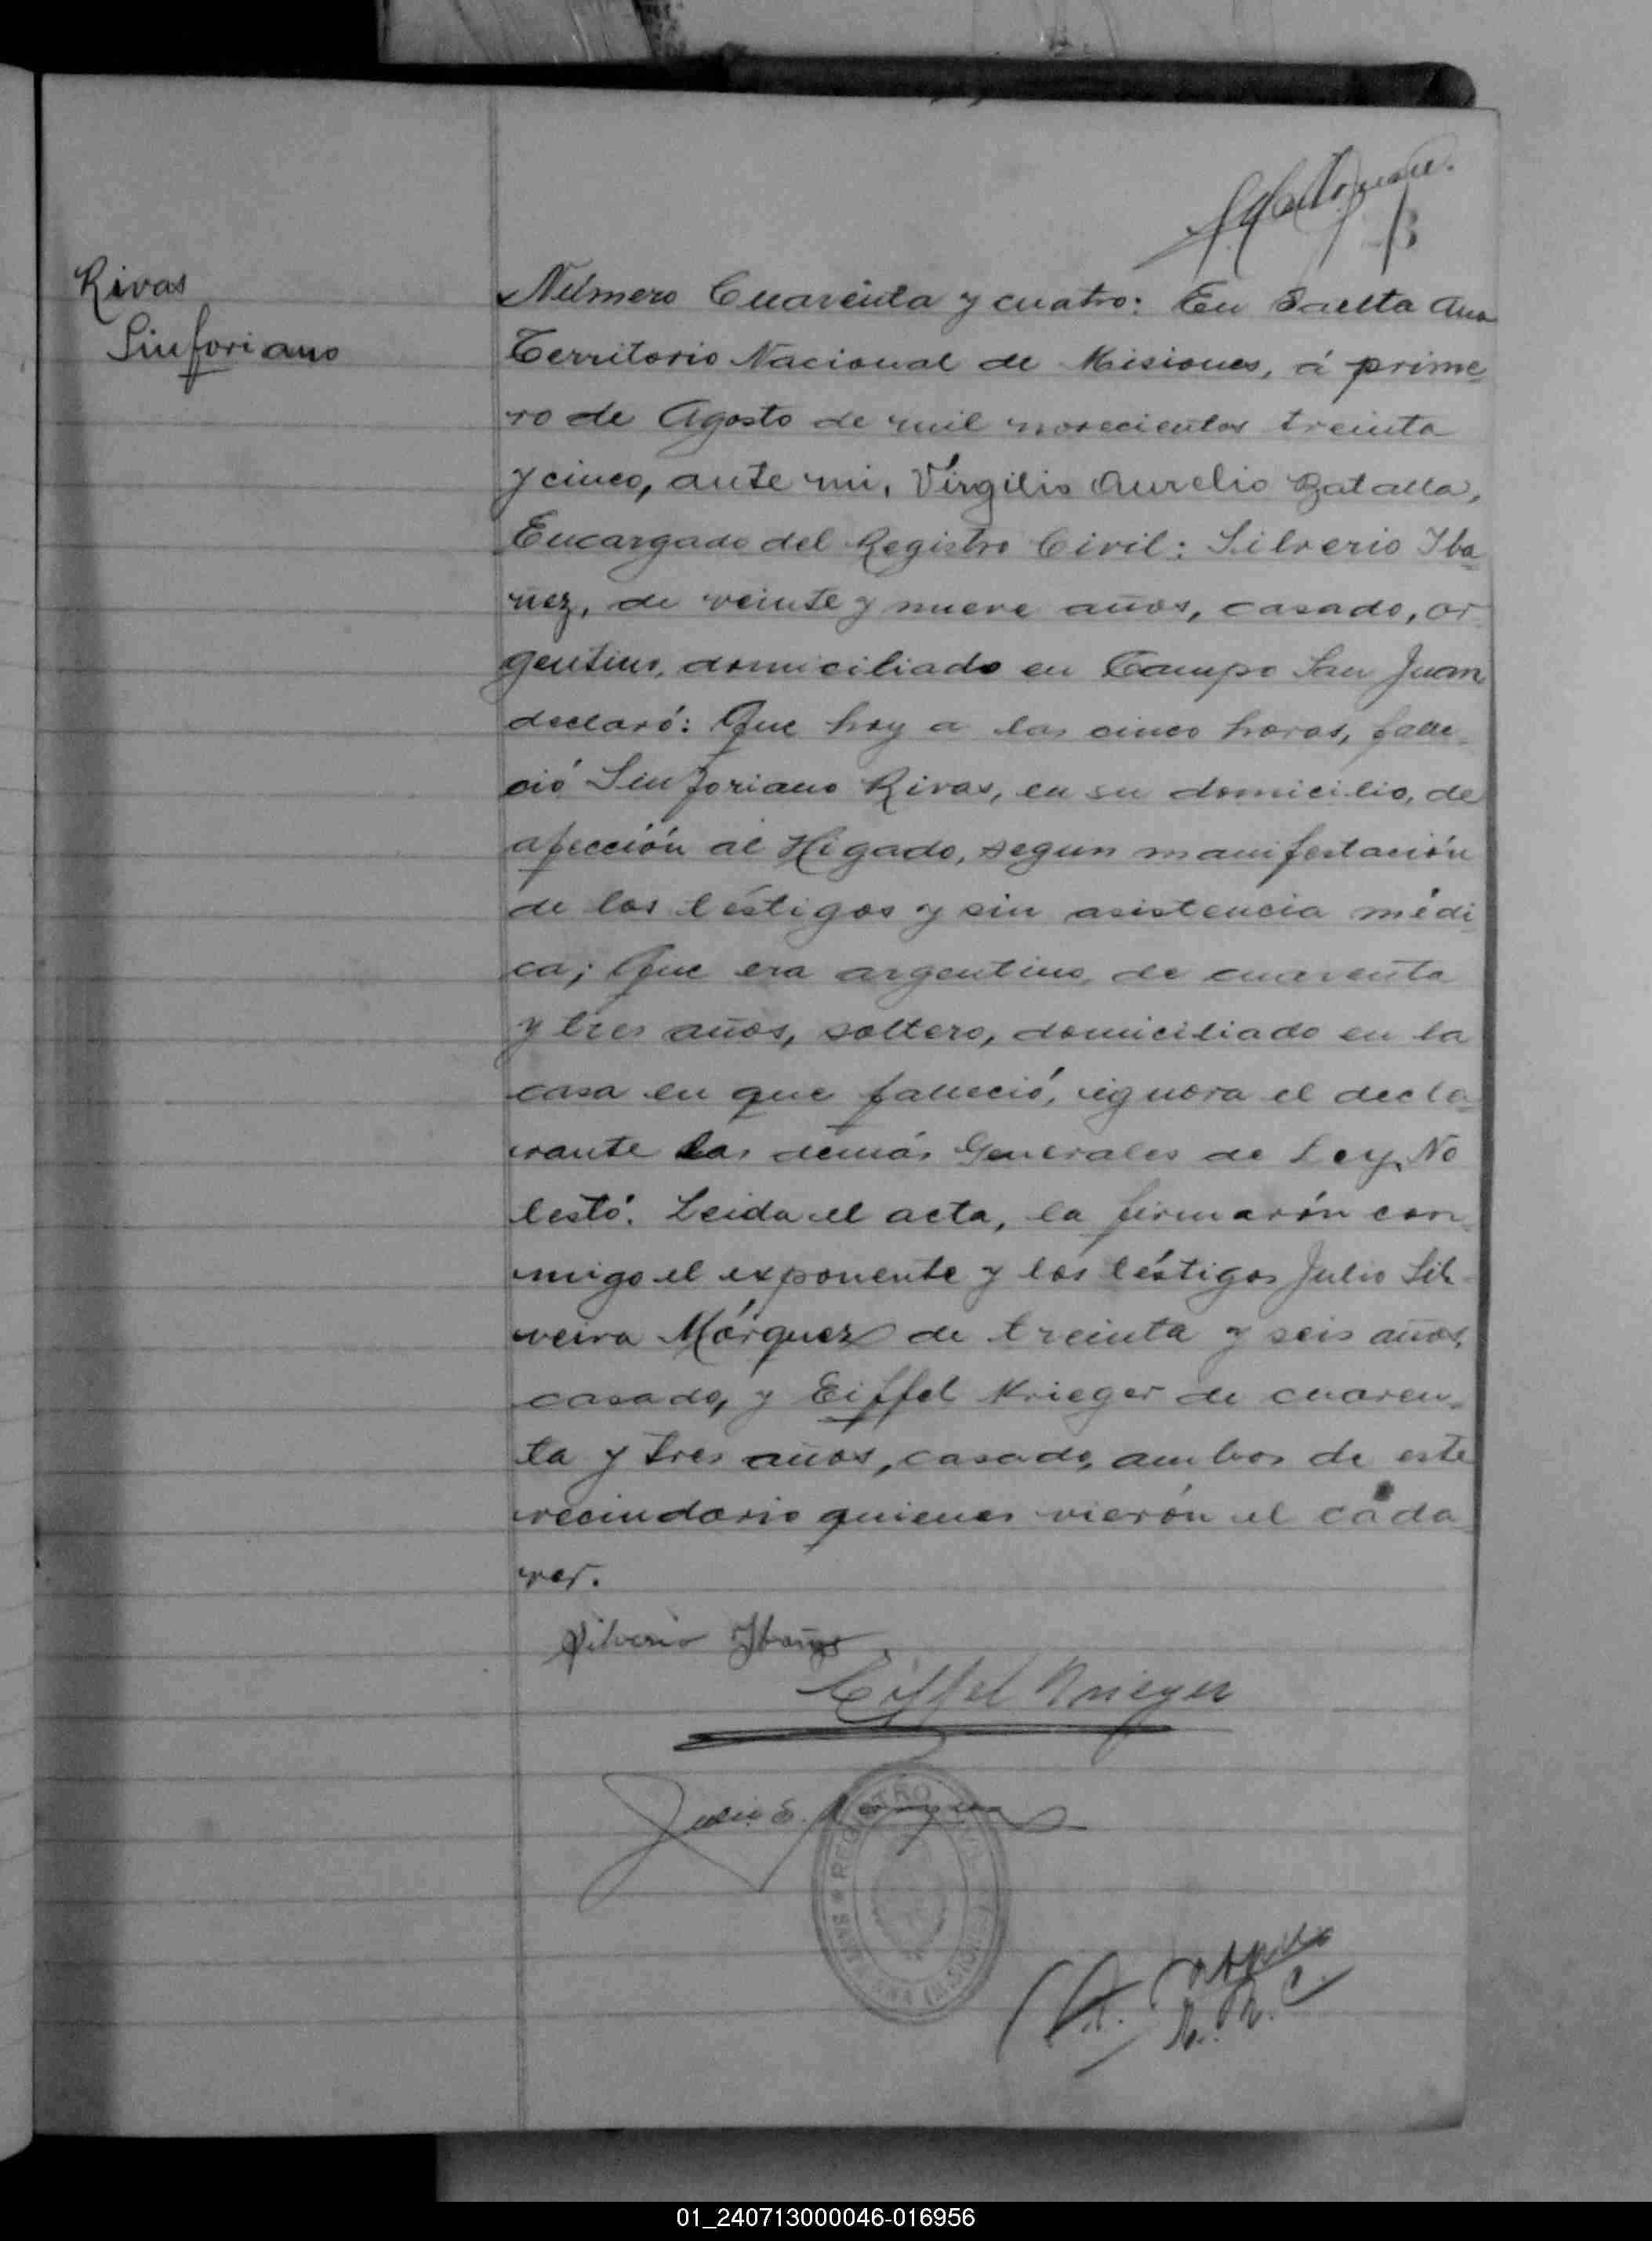 Rivas
Sinforiano
Número Cuarénta y cuatro: En Santa Ana
Territorio Nacional de Misiones, á prime-
ro de Agosto de mil novecientos treinta
y cinco, ante mi, Virgilio Aurelio Batalla,
Encargado del Registro Civil: Silverio Iba-
ñez, de veinte y nueve años, casado, ar-
gentino, domiciliado en Campo San Juan
declaró: Que hoy a las cinco horas, falle-
ció Sinforiano Rivas, en su domicilio, de
afección al Higado, segun manifestación
de los téstigos y sin asistencia médi-
ca; Que era argentino, de cuarenta
y tres años, soltero, domiciliado en la
casa en que falleció, ignora el decla-
rante las demás Generales de Ley. No
testó. Leida el acta, la firmarón con-
migo el exponente y los téstigos Julio Sil-
veira Márquez de treinta y seis años,
casado, y Eiffel Krieger de cuaren-
ta y tres años, casado, ambos de este
vecindario quienes vierón el cáda-
ver.
Silverio Ibañez
Eiffel Krieger
Julio S. Marquez
REGISTRO CIVIL
SANTA ANA (MISIONES)
01_240713000046-016956